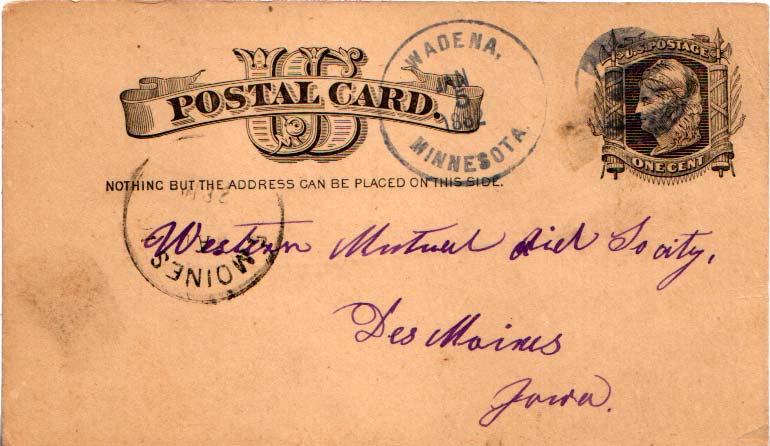 US
POSTAL CARD.
NOTHING BUT THE ADDRESS CAN BE PLACED ON THIS SIDE.
WADENA,
JAN
5
MINNESOTA.
U.S. POSTAGE
ONE CENT
MOINES
Western Mutual Aid Socity,
Des Moines
Iowa.